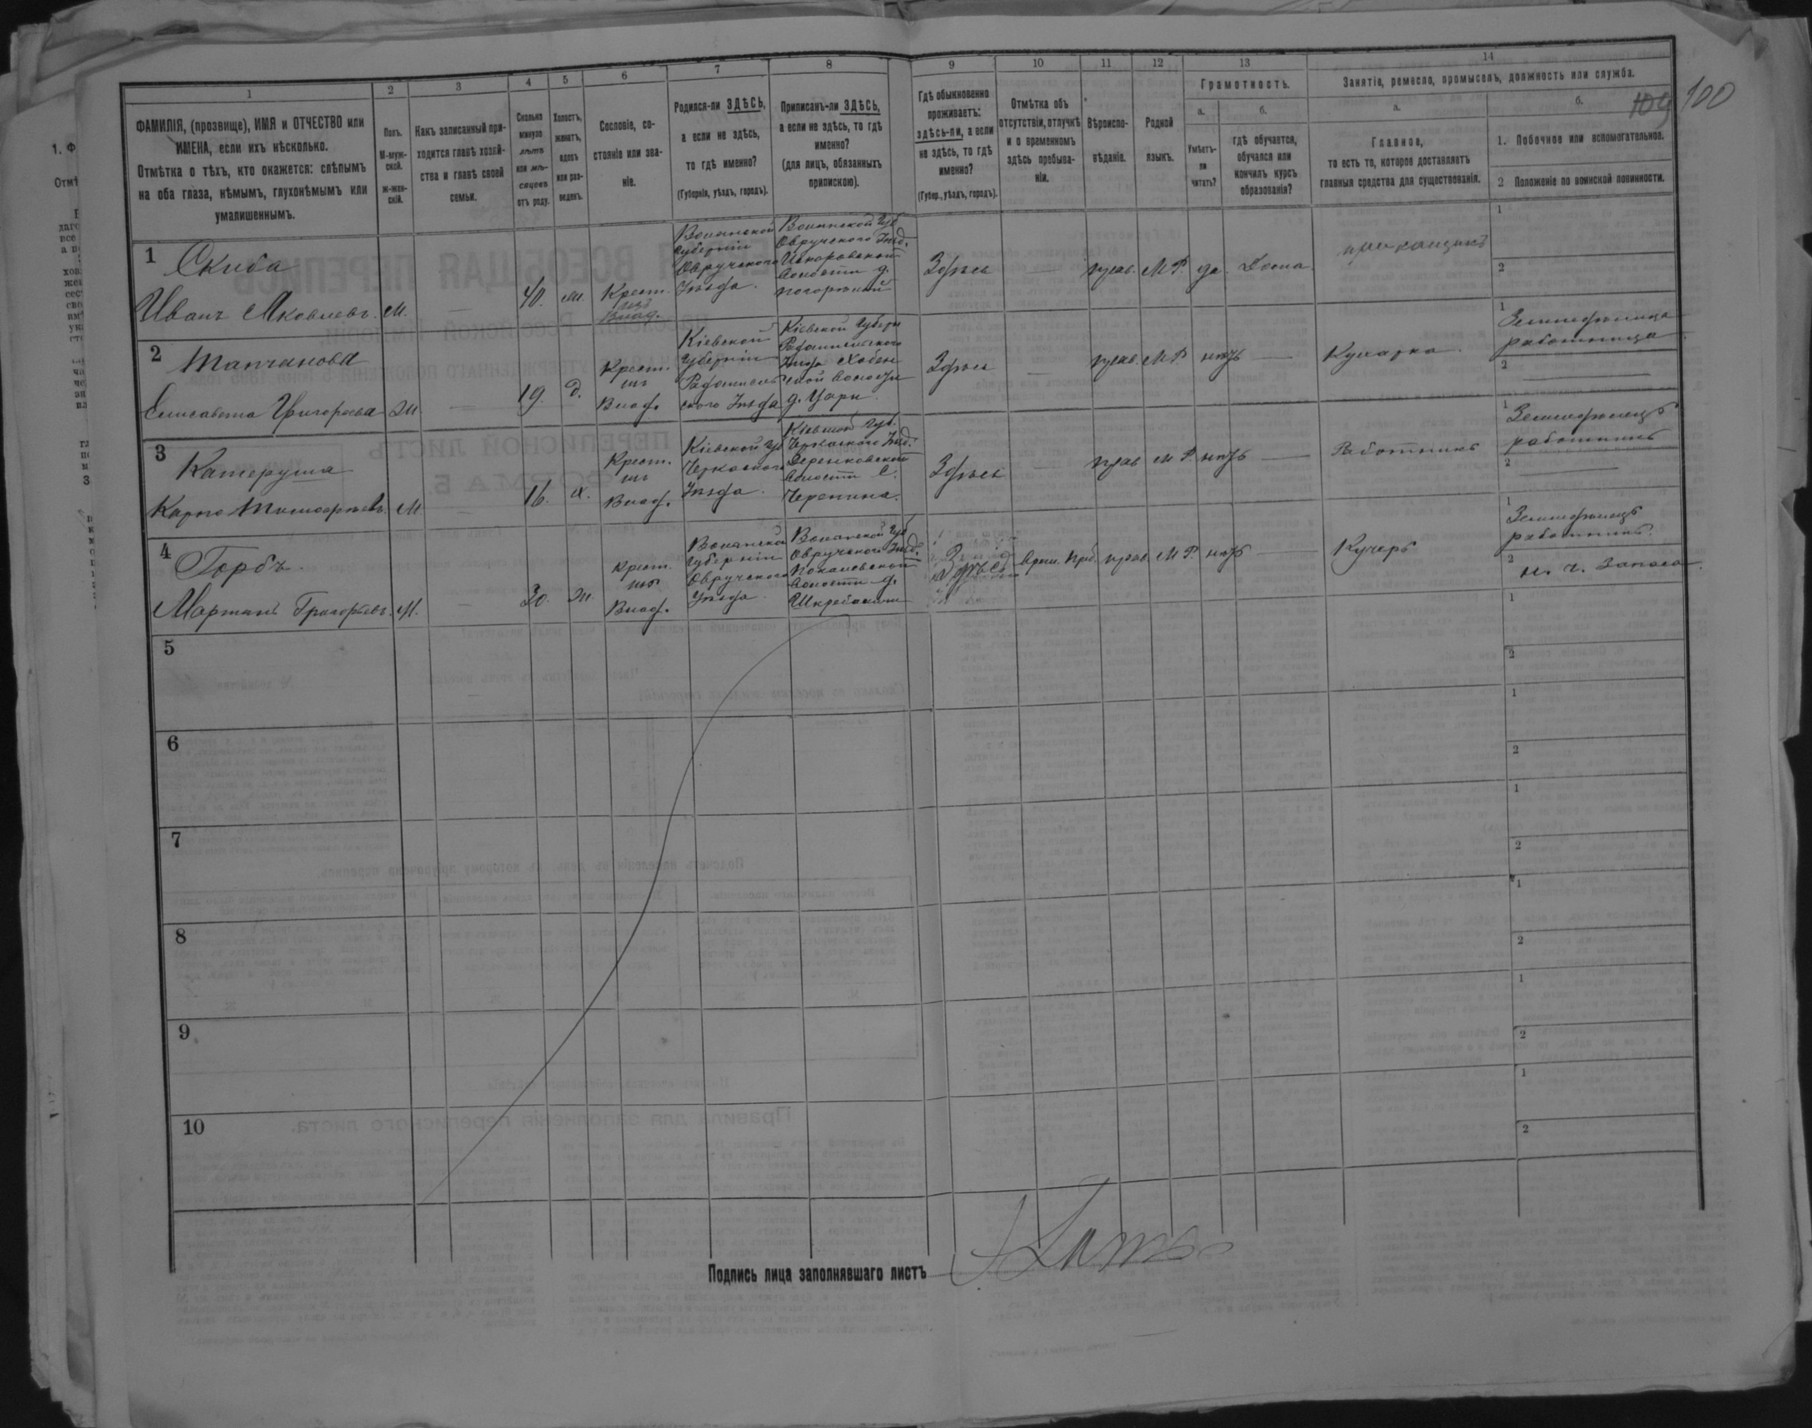 1 2 3 4 5 6 7 8 9 10 11 12 13 14
109 100
ФАМИЛІЯ, (прозвище), ИМЯ и ОТЧЕСТВО или
ИМЕНА, если ихъ нѣсколько.
Отмѣтка о тѣхъ, кто окажется: слѣпымъ
на оба глаза, нѣмымъ, глухонѣмымъ или
умалишеннымъ.
Полъ.
М-муж-
ской.
Ж-жен-
скій.
Какъ записанный при-
ходится главѣ хозяй-
ства и главѣ своей
семьи.
Сколько
минуло
лѣтъ
или мѣ-
сяцевъ
отъ роду.
Холостъ,
женатъ,
вдовъ
или раз-
веденъ.
Сословіе, со-
стояніе или зва-
ніе.
Родился-ли ЗДѢСЬ,
а если не здѣсь,
то гдѣ именно?
(Губернія, уѣздъ, городъ).
Приписанъ-ли ЗДѢСЬ,
а если не здѣсь, то гдѣ
именно?
(для лицъ, обязанныхъ
припискою).
Гдѣ обыкновенно
проживаетъ:
здѣсь-ли, а если
не здѣсь, то гдѣ
именно?
(Губер., уѣздъ, городъ).
Отмѣтка объ
отсутствіи, отлучкѣ
и о временномъ
здѣсь пребыва-
ніи.
Вѣроиспо-
вѣданіе.
Родной
языкъ.
Грамотность.
а. б.
Умѣетъ-
ли
читать?
гдѣ обучается,
обучался или
кончилъ курсъ
образованія?
Занятіе, ремесло, промыселъ, должность или служба.
а. б.
Главное,
то есть то, которое доставляетъ
главныя средства для существованія.
1. Побочное или вспомогательное.
2 Положеніе по воинской повинности.
1
Скиба
Иванъ Яковлевъ
М.
40.
ж.
Крест.
изъ
Влад.
Волынской
Губерніи
Овручского
Уѣзда.
Волынской Губ
Овручского Уѣзд.
Волости д.
Здѣсь
прав.
М. Р.
да
Дома
прикащикъ
1
2
2
Тапчанова
Елисавета Григорьева
Ж
19
д.
Крест.
изъ
Влад.
Кіевской
Губерніи
Радомысль
ского Уѣзда
Кіевской Губерн
Радомысльского
Уѣзда Хабен
ской Волости
д.
Здѣсь
прав.
М. Р.
нѣтъ
Кухарка
1
Земледѣлица
работница
2
3
Катеруша
Карпо
М
16.
х.
Крест.
изъ
Влад.
Кіевской Губ
Черкаского
Уѣзда.
Кіевской Губ.
Черкаского Уѣзд.
Волости с.
Черепина.
Здѣсь
прав
М Р
нѣтъ
Работникъ
1
Земледѣлецъ
работникъ
2
4
Горбъ
Мартинъ Григорьевъ
М.
30.
ж.
крест.
изъ
Влад.
Волынской
Губерніи
Овручского
Уѣзда.
Волынской Губ
Овручского Уѣзд.
Волости д.
Здѣсь
Врем. Приб.
прав.
М. Р.
нѣтъ
Кучеръ
1
Земледѣлецъ
работникъ.
2
н. ч. запаса
5
1
2
6
1
2
7
1
2
8
1
2
9
1
2
10
1
2
Подпись лица заполнявшаго листъ